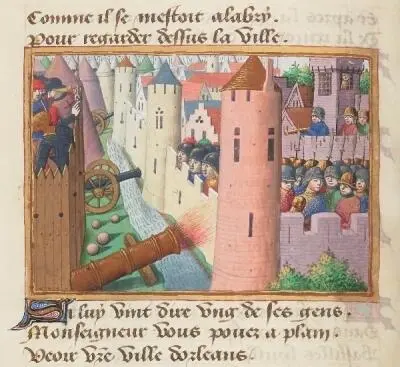 Comme il se mettoit alabry.
Pour regarder dessus la ville.
Si luy vint dire vng de ses gens.
Monseigneur vous pouez a plain
Veoir vre ville dorleans.